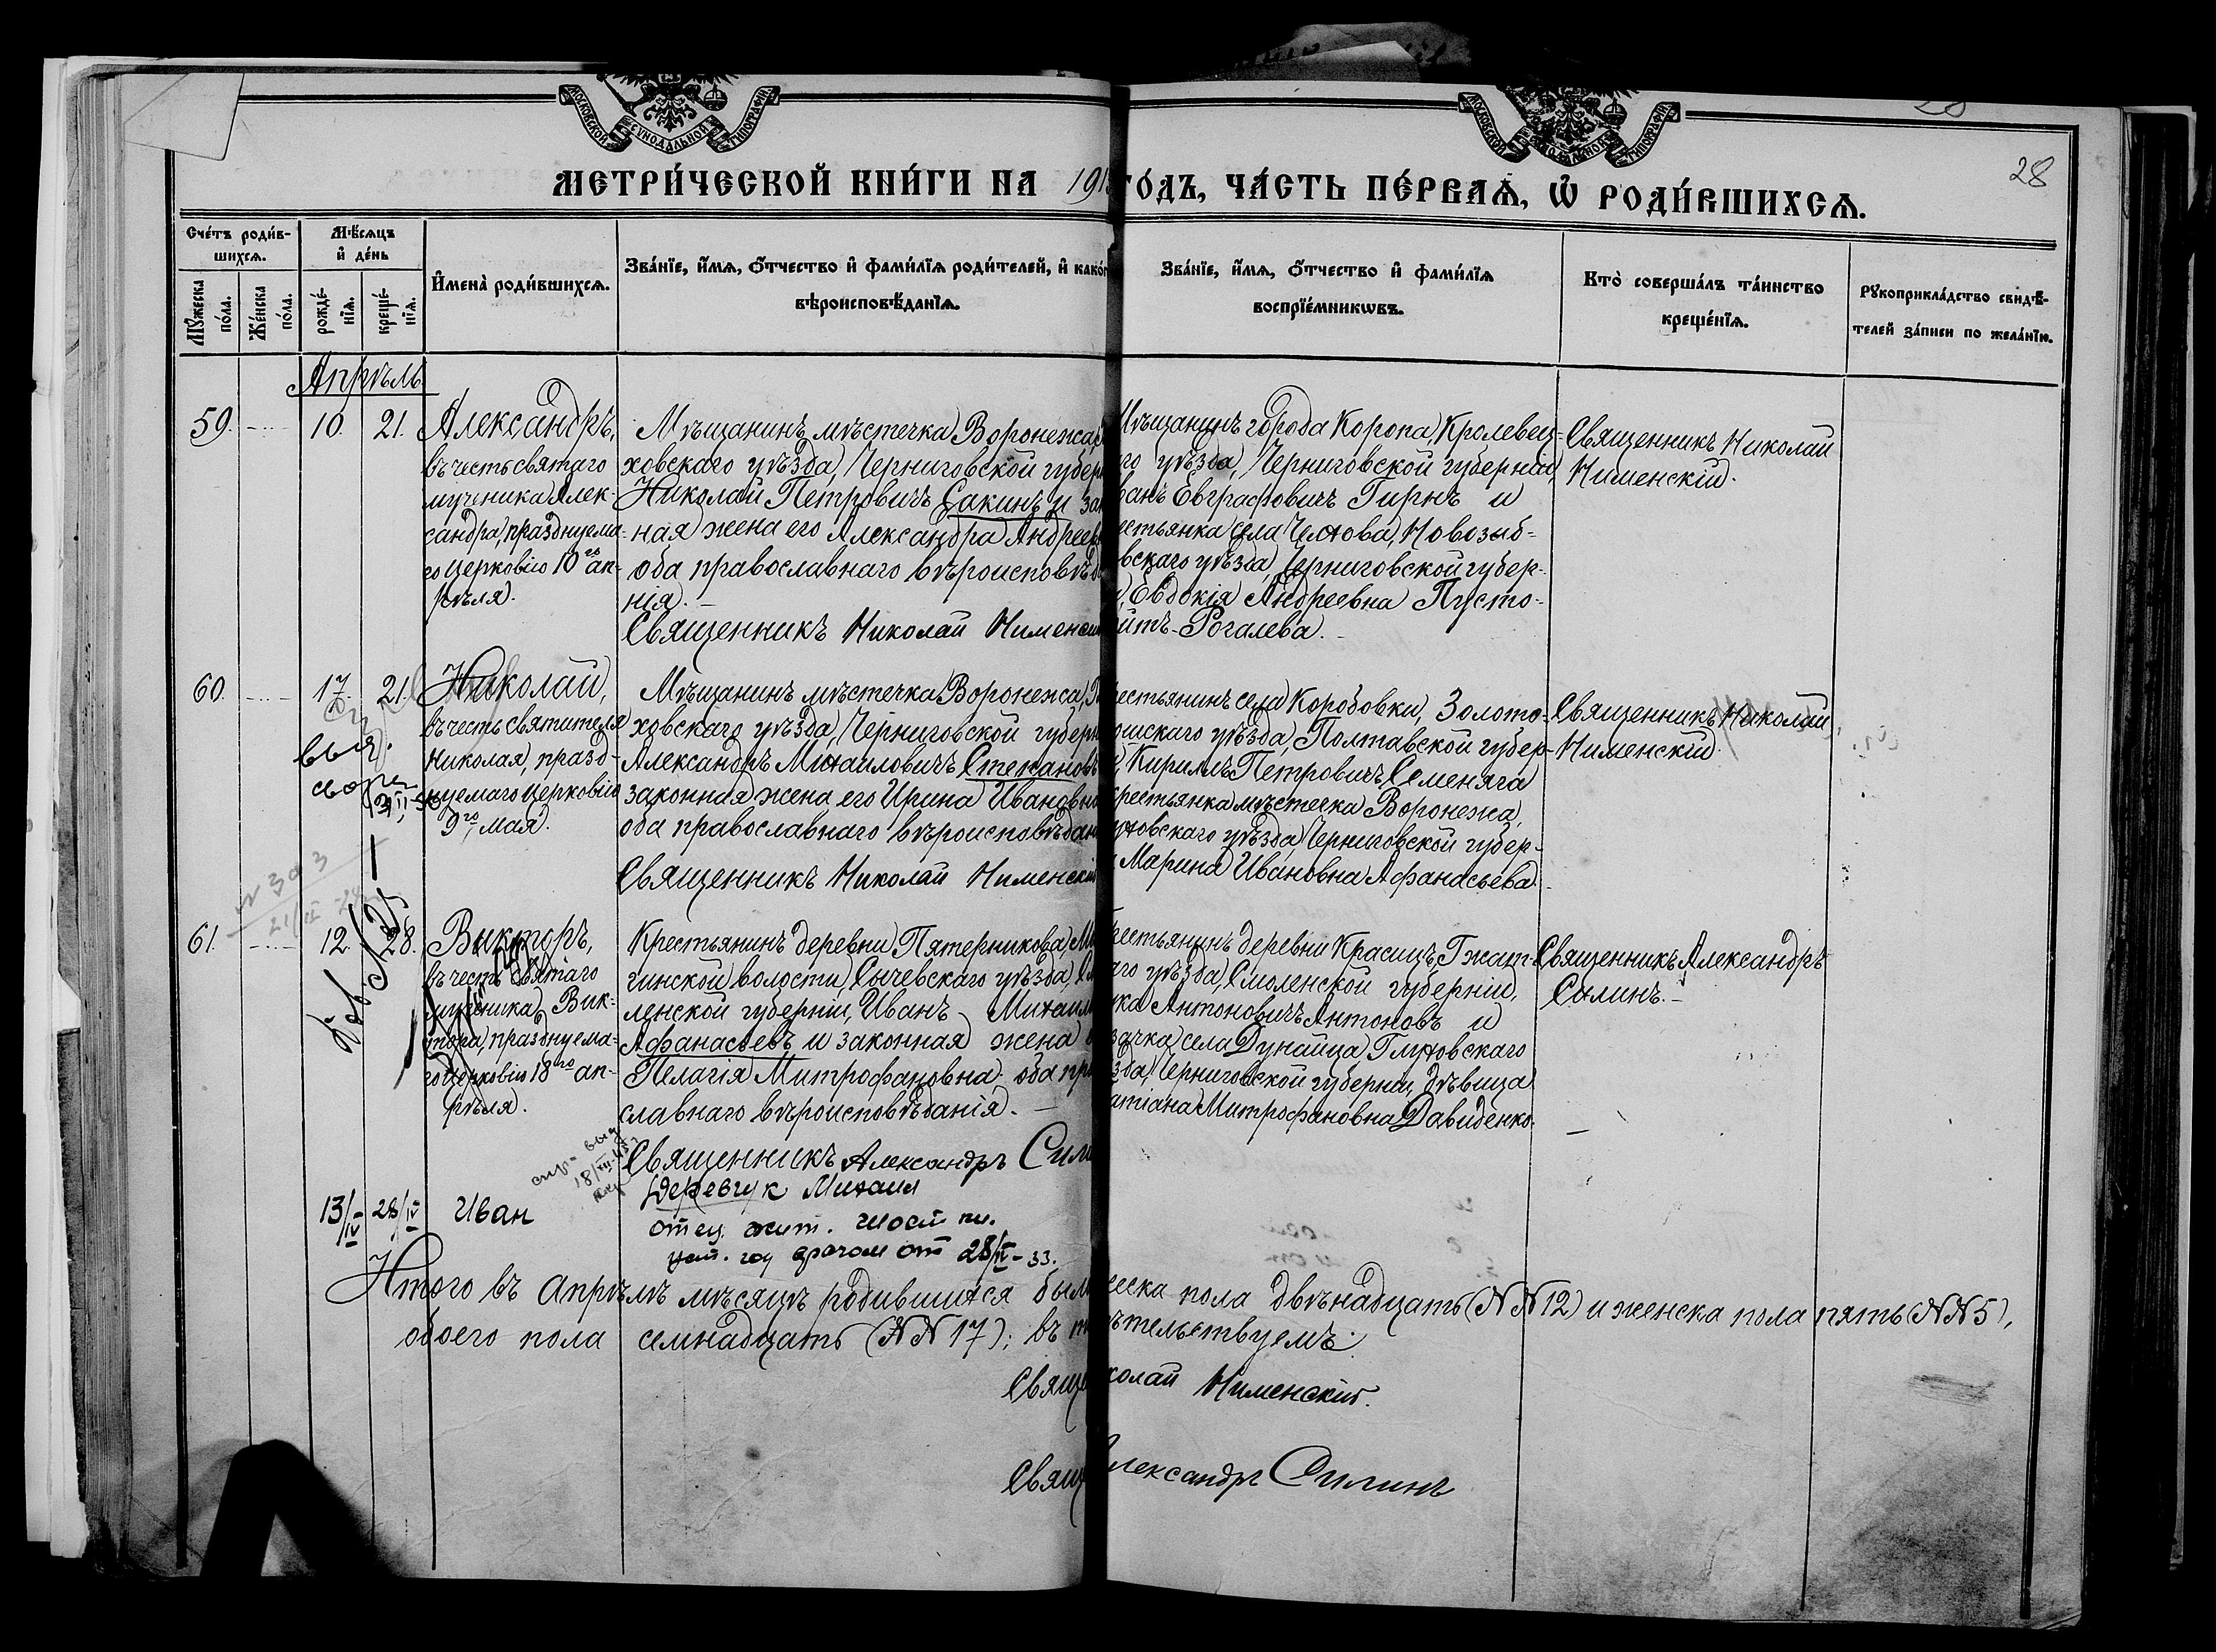 28
МОСКОВСКОЙ СУНОДАЛЬНОЙ ТИПОГРАФИИ
МОСКОВСКОЙ СУНОДАЛЬНОЙ ТИПОГРАФИИ
МЕТРИ́ЧЕСКОЙ КНИ́ГИ НА 191
ГО́ДЪ, ЧА́СТЬ ПЕ́РВАѦ, Ѽ РОДИ́ВШИХСѦ.
Счетъ роди́в-
шихсѧ.
Мѣ́сѧцъ
и҆ де́нь
Мꙋ́жеска
по́ла.
Же́нска
по́ла.
рожде́-
нїѧ.
креще́-
нїѧ.
И҆мена̀ роди́вшихсѧ.
Зва́нїе, и҆́мѧ, ѻ҆́тчество и҆ фами́лїѧ роди́телей, и҆ како́г
вѣроисповѣ́данїѧ.
Зва́нїе, и҆́мѧ, ѻ҆́тчество и҆ фами́лїѧ
воспрїе́мникѡвъ.
Кто̀ соверша́лъ та́инство
креще́нїѧ.
Рꙋкоприкла́дство свидѣ́-
телей за́писи по жела́нїю.
Апрѣль
59. 10. 21.
Александръ,
въ честь святаго
мученика Алек-
сандра, празднуема-
го церковію 10го ап-
рѣля.
Мѣщанинъ мѣстечка Воронежа,
ховскаго уѣзда, Черниговской губер
Николай Петровичъ Сакинъ и за
ная жена его Александра Андреев
оба православнаго вѣроисповѣд
нія. –
Священникъ Николай Нименск
Мѣщанинъ города Коропа, Кролевец-
го уѣзда, Черниговской губерніи,
ванъ Евграфовичъ Гирнъ и
естьянка села Челхова, Новозыб-
вскаго уѣзда, Черниговской губер-
Евдокія Андреевна Пусто-
йтъ-Рогалева. –
Священникъ Николай
Нименскій.
60. 17. 21.
Николай,
въ честь святителя
Николая, празд-
нуемаго церковію
9го мая.
Мѣщанинъ мѣстечка Воронежа,
ховскаго уѣзда, Черниговской губерн
Александръ Михаиловичъ Степановъ
законная жена его Ирина Ивановна
оба православнаго вѣроисповѣдан
Священникъ Николай Нименскій
естьянинъ села Коробовки, Золото-
ошскаго уѣзда, Полтавской губер-
Кириллъ Петровичъ Семеняга
крестьянка мѣстечка Воронежа,
уховскаго уѣзда, Черниговской губер-
Марина Ивановна Афанасьева.
Священникъ Николай
Нименскій.
№ 303
61. 12. 28.
Викторъ,
въ честь святаго
мученика Вик-
тора, празднуема-
го церковію 18го ап-
рѣля.
Крестьянинъ деревни Пятерникова, М
чинской волости, Сычевскаго уѣзда, См
ленской губерніи, Иванъ Михаил
Афанасьевъ и законная жена
Пелагія Митрофановна, оба пра
славнаго вѣроисповѣданія. –
Священникъ Александръ Сили
естьянинъ деревни Красицъ, Гжат-
аго уѣзда, Смоленской губерніи,
ука Антоновичъ Антоновъ и
зачка села Дунайца, Глуховскаго
зда, Черниговской губерніи, дѣвица
атіана Митрофановна Давиденко.
Священникъ Александръ
Силинъ. –
13/IV 28/IV Иван
Деревчук Михаил
отец жит.
врачом от 28/IV-33.
Итого въ Апрѣлѣ мѣсяцѣ родившихся был
обоего пола семнадцать (№№ 17); въ
Свящ
Свящ
еска пола двѣнадцать (№№ 12) и женска пола пять (№№ 5),
ѣтельствуемъ:
колай Нименскій.
лександръ Силинъ